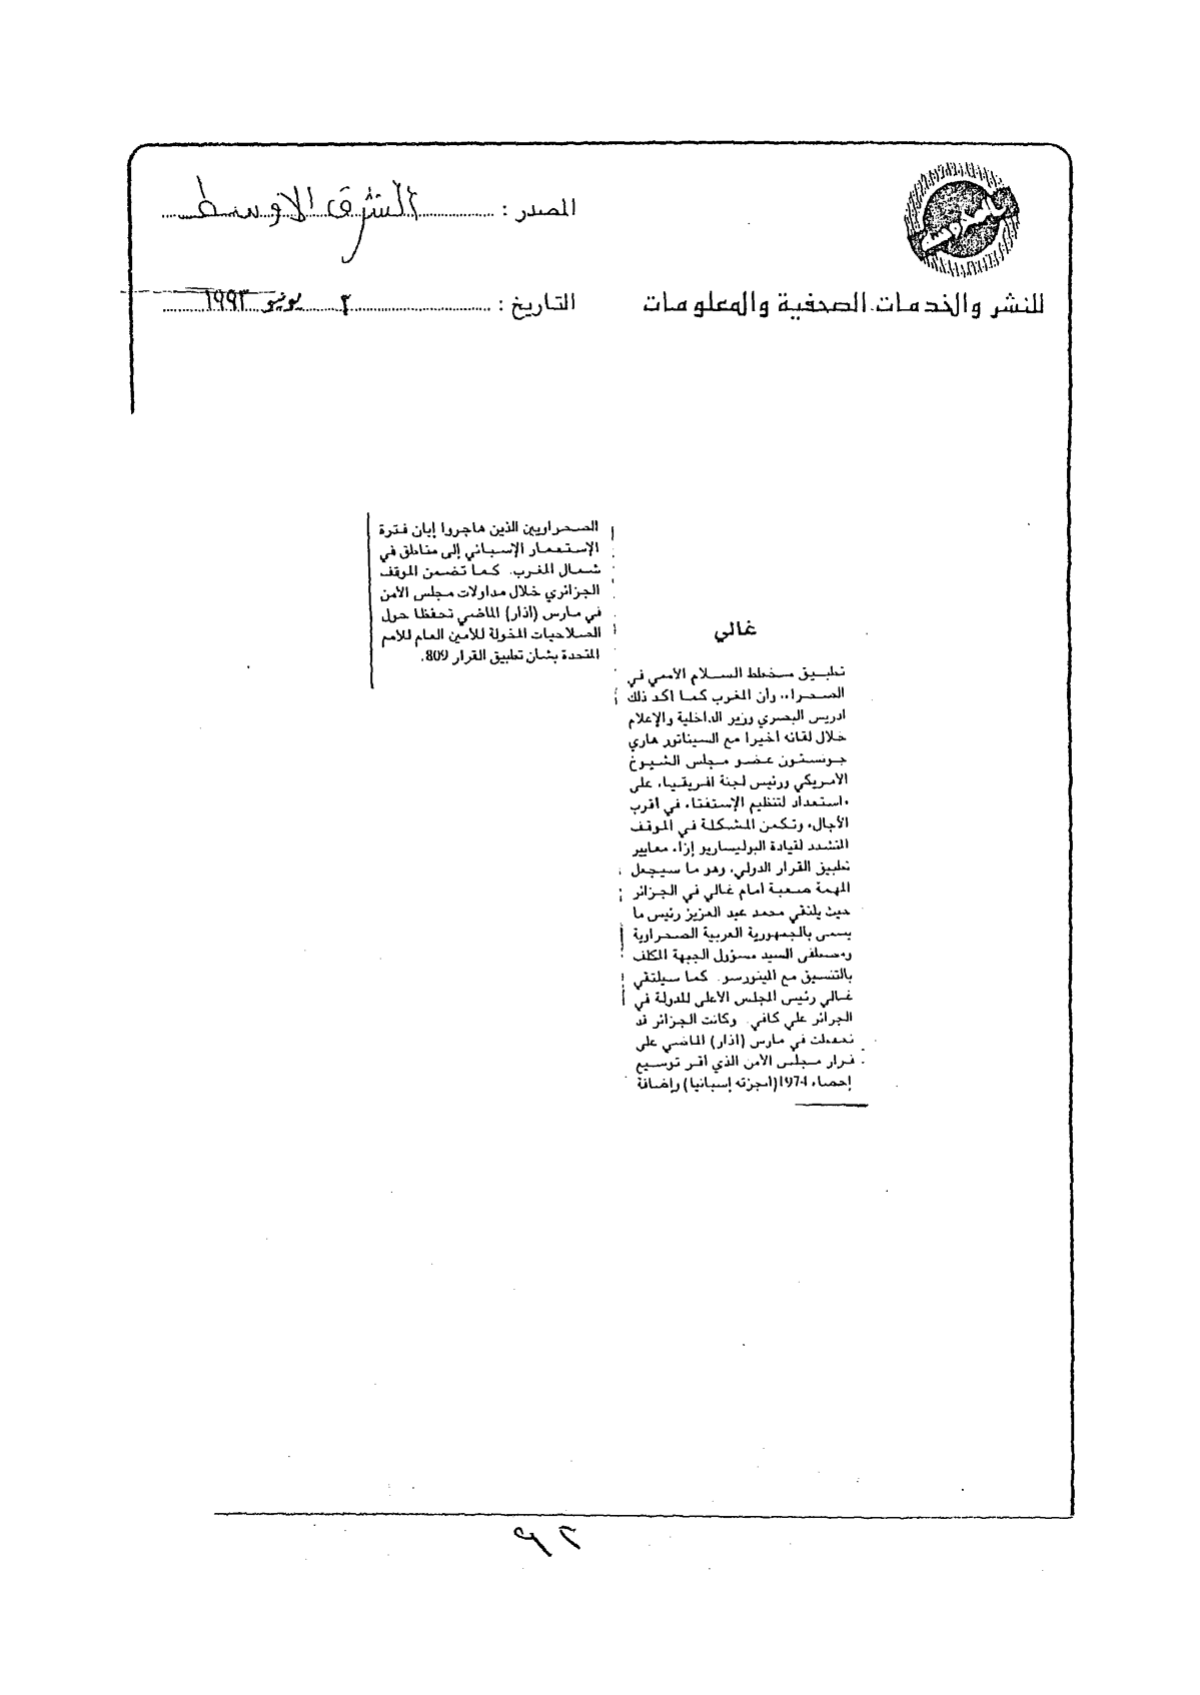 المصدر : الشرق الاوسط
للنشر والخدمات الصحفية والمعلومات
التاريخ : ٢ يونيو ١٩٩٣
غالي
تطبيق مخطط السلام الأممي في
الصحراء، وأن المغرب كما اكد ذلك
ادريس البصري وزير الداخلية والإعلام
خلال لقائه أخيرا مع السيناتور هاري
جونستون عضو مجلس الشيوخ
الأمريكي ورئيس لجنة افريقيا، على
استعداد لتنظيم الإستفتاء في اقرب
الأجال، وتكمن المشكلة في الموقف
المتشدد لقيادة البوليساريو إزاء معايير
تطبيق القرار الدولي، وهو ما سيجعل
المهمة صعبة أمام غالي في الجزائر
حيث يلتقي محمد عبد العزيز رئيس ما
يسمى بالجمهورية العربية الصحراوية
ومصطفى السيد مسؤول الجبهة المكلف
بالتنسيق مع المينورسو. كما سيلتقي
غالي رئيس المجلس الأعلى للدولة في
الجزائر علي كافي. وكانت الجزائر قد
تحفظت في مارس (اذار) الماضي على
قرار مجلس الأمن الذي اقر توسيع
إحصاء 1974 (انجزته إسبانيا) وإضافة
الصحراويين الذين هاجروا إبان فترة
الإستعمار الإسباني إلى مناطق في
شمال المغرب. كما تضمن الموقف
الجزائري خلال مداولات مجلس الأمن
في مارس (اذار) الماضي تحفظا حول
الصلاحيات المخولة للأمين العام للأمم
المتحدة بشأن تطبيق القرار 809.
٩٢